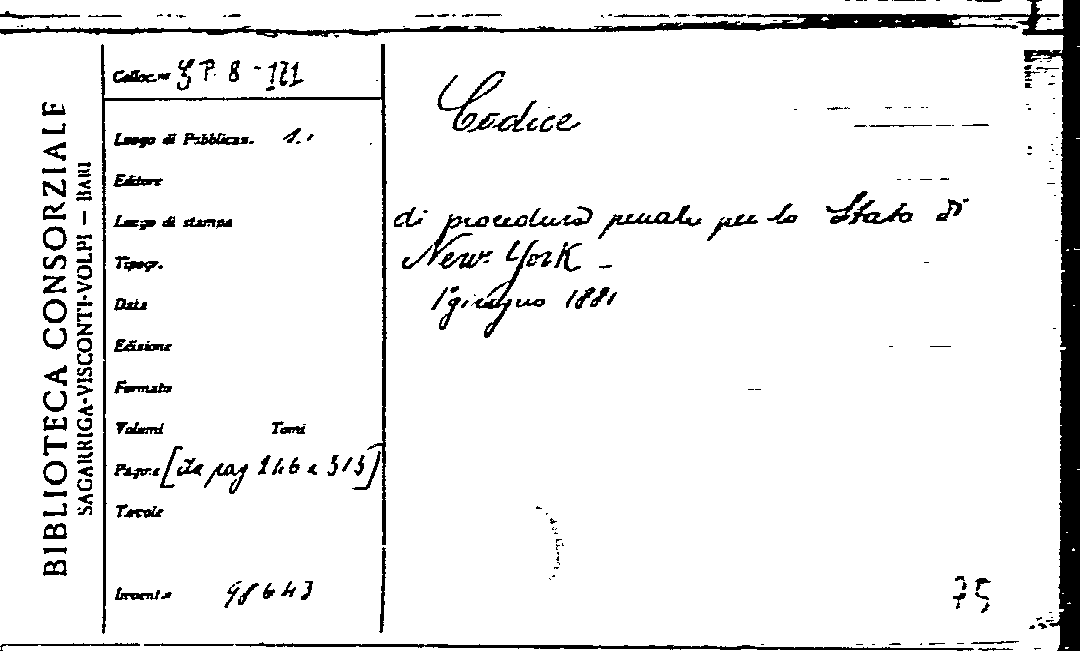 BIBLIOTECA CONSORZIALE
SAGARRIGA-VISCONTI-VOLPI — BARI
Colloc.ne P. 8 - 171
Luogo di Pubblicaz.
Editore
Luogo di stampa
Tipogr.
Data
Edizione
Formato
Volumi Tomi
Pagine [da pag 246 a 313]
Tavole
Invent.o 98643
Codice
di procedura penale per lo Stato di
New York -
1° giugno 1881
75